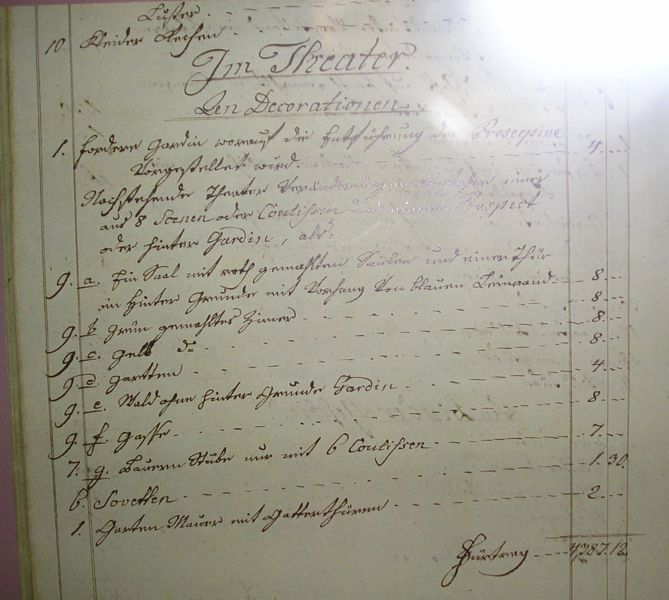 Luster
10. Kleider Rechen
Im Theater.
An Decorationen
1. fordere Gardin worauf die Entführung der Proserpine 4
Vorgestellet wird.
Nachstehende Theater Veränderungen einer
aus 8 Scenen oder Coulissen und einem Prospect
oder hinter Gardin, als:
9. a. Ein Saal mit roth gemahlten Säulen und einer Thür
im Hinter Grunde mit Vorhang von blauen Leinwand 8
9. b. Grün gemahltes Zimer 8
9. c. Gelb do 8
9. d. Gartten 8
9. e. Wald ohne hinter Grunde Gardin 4
9. f. Gasse 8
7. g. Bauern Stube nur mit 6 Coulissen 7
6. Sovetten 1 30
1. Garten Mauer mit Gatterthüren 2
Fürtrag 4387 12